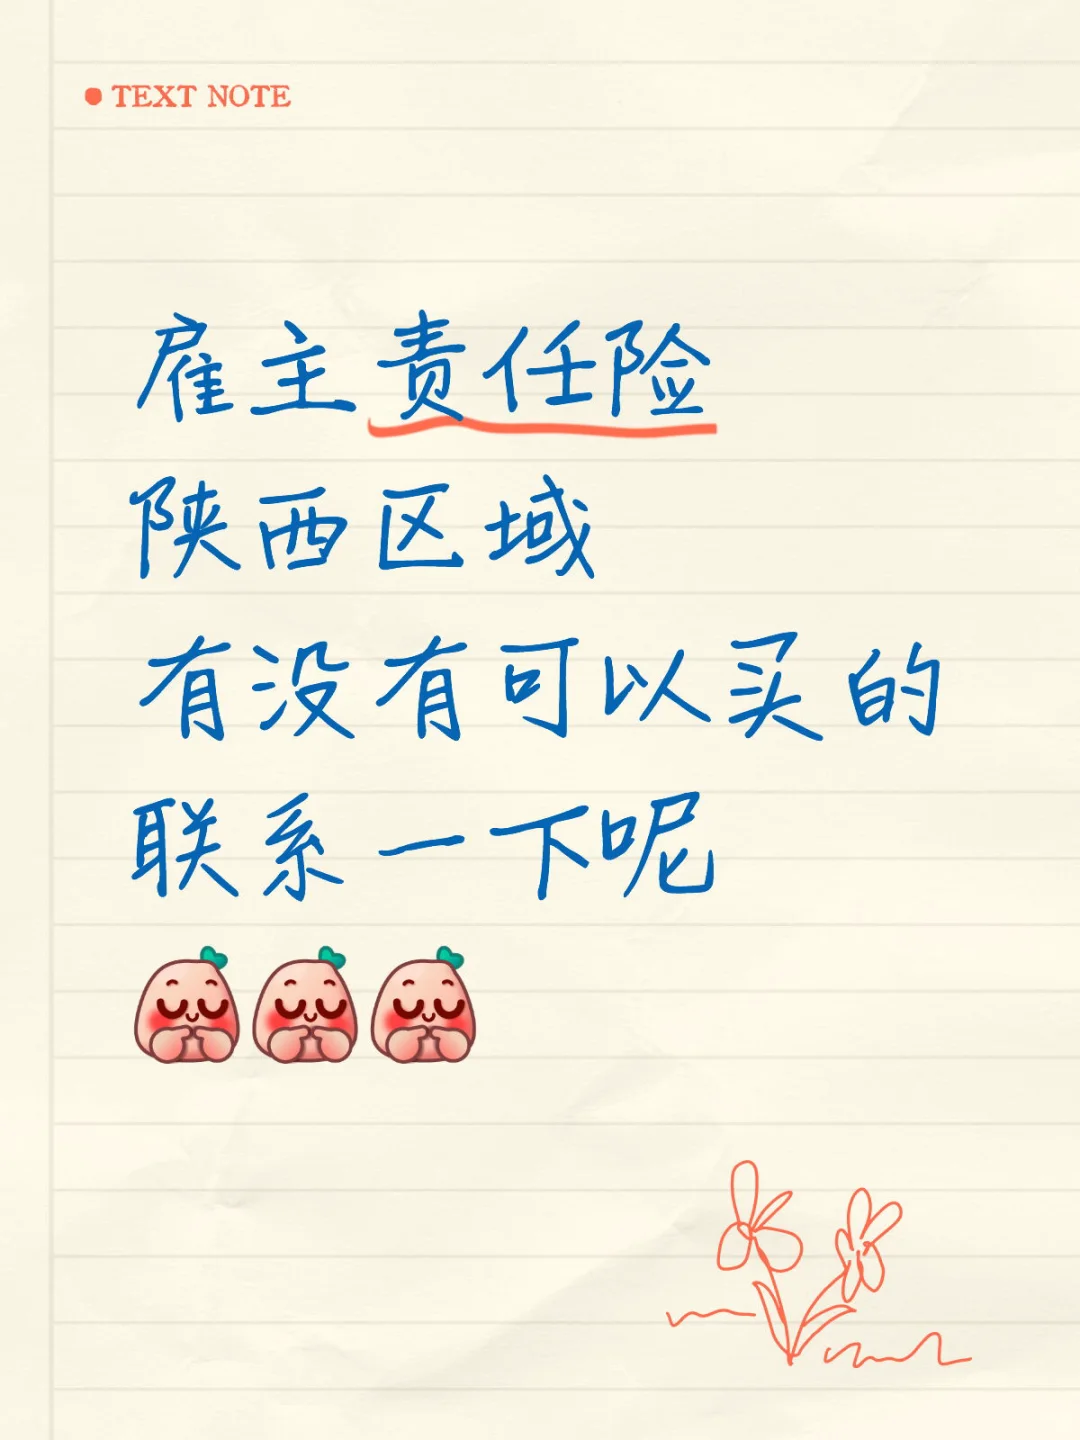 TEXT NOTE
雇主责任险
陕西区域
有没有可以买的
联系一下呢